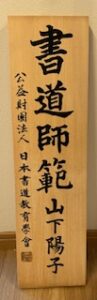 書道師範 山下陽子
公益財團法人 日本書道教育學會